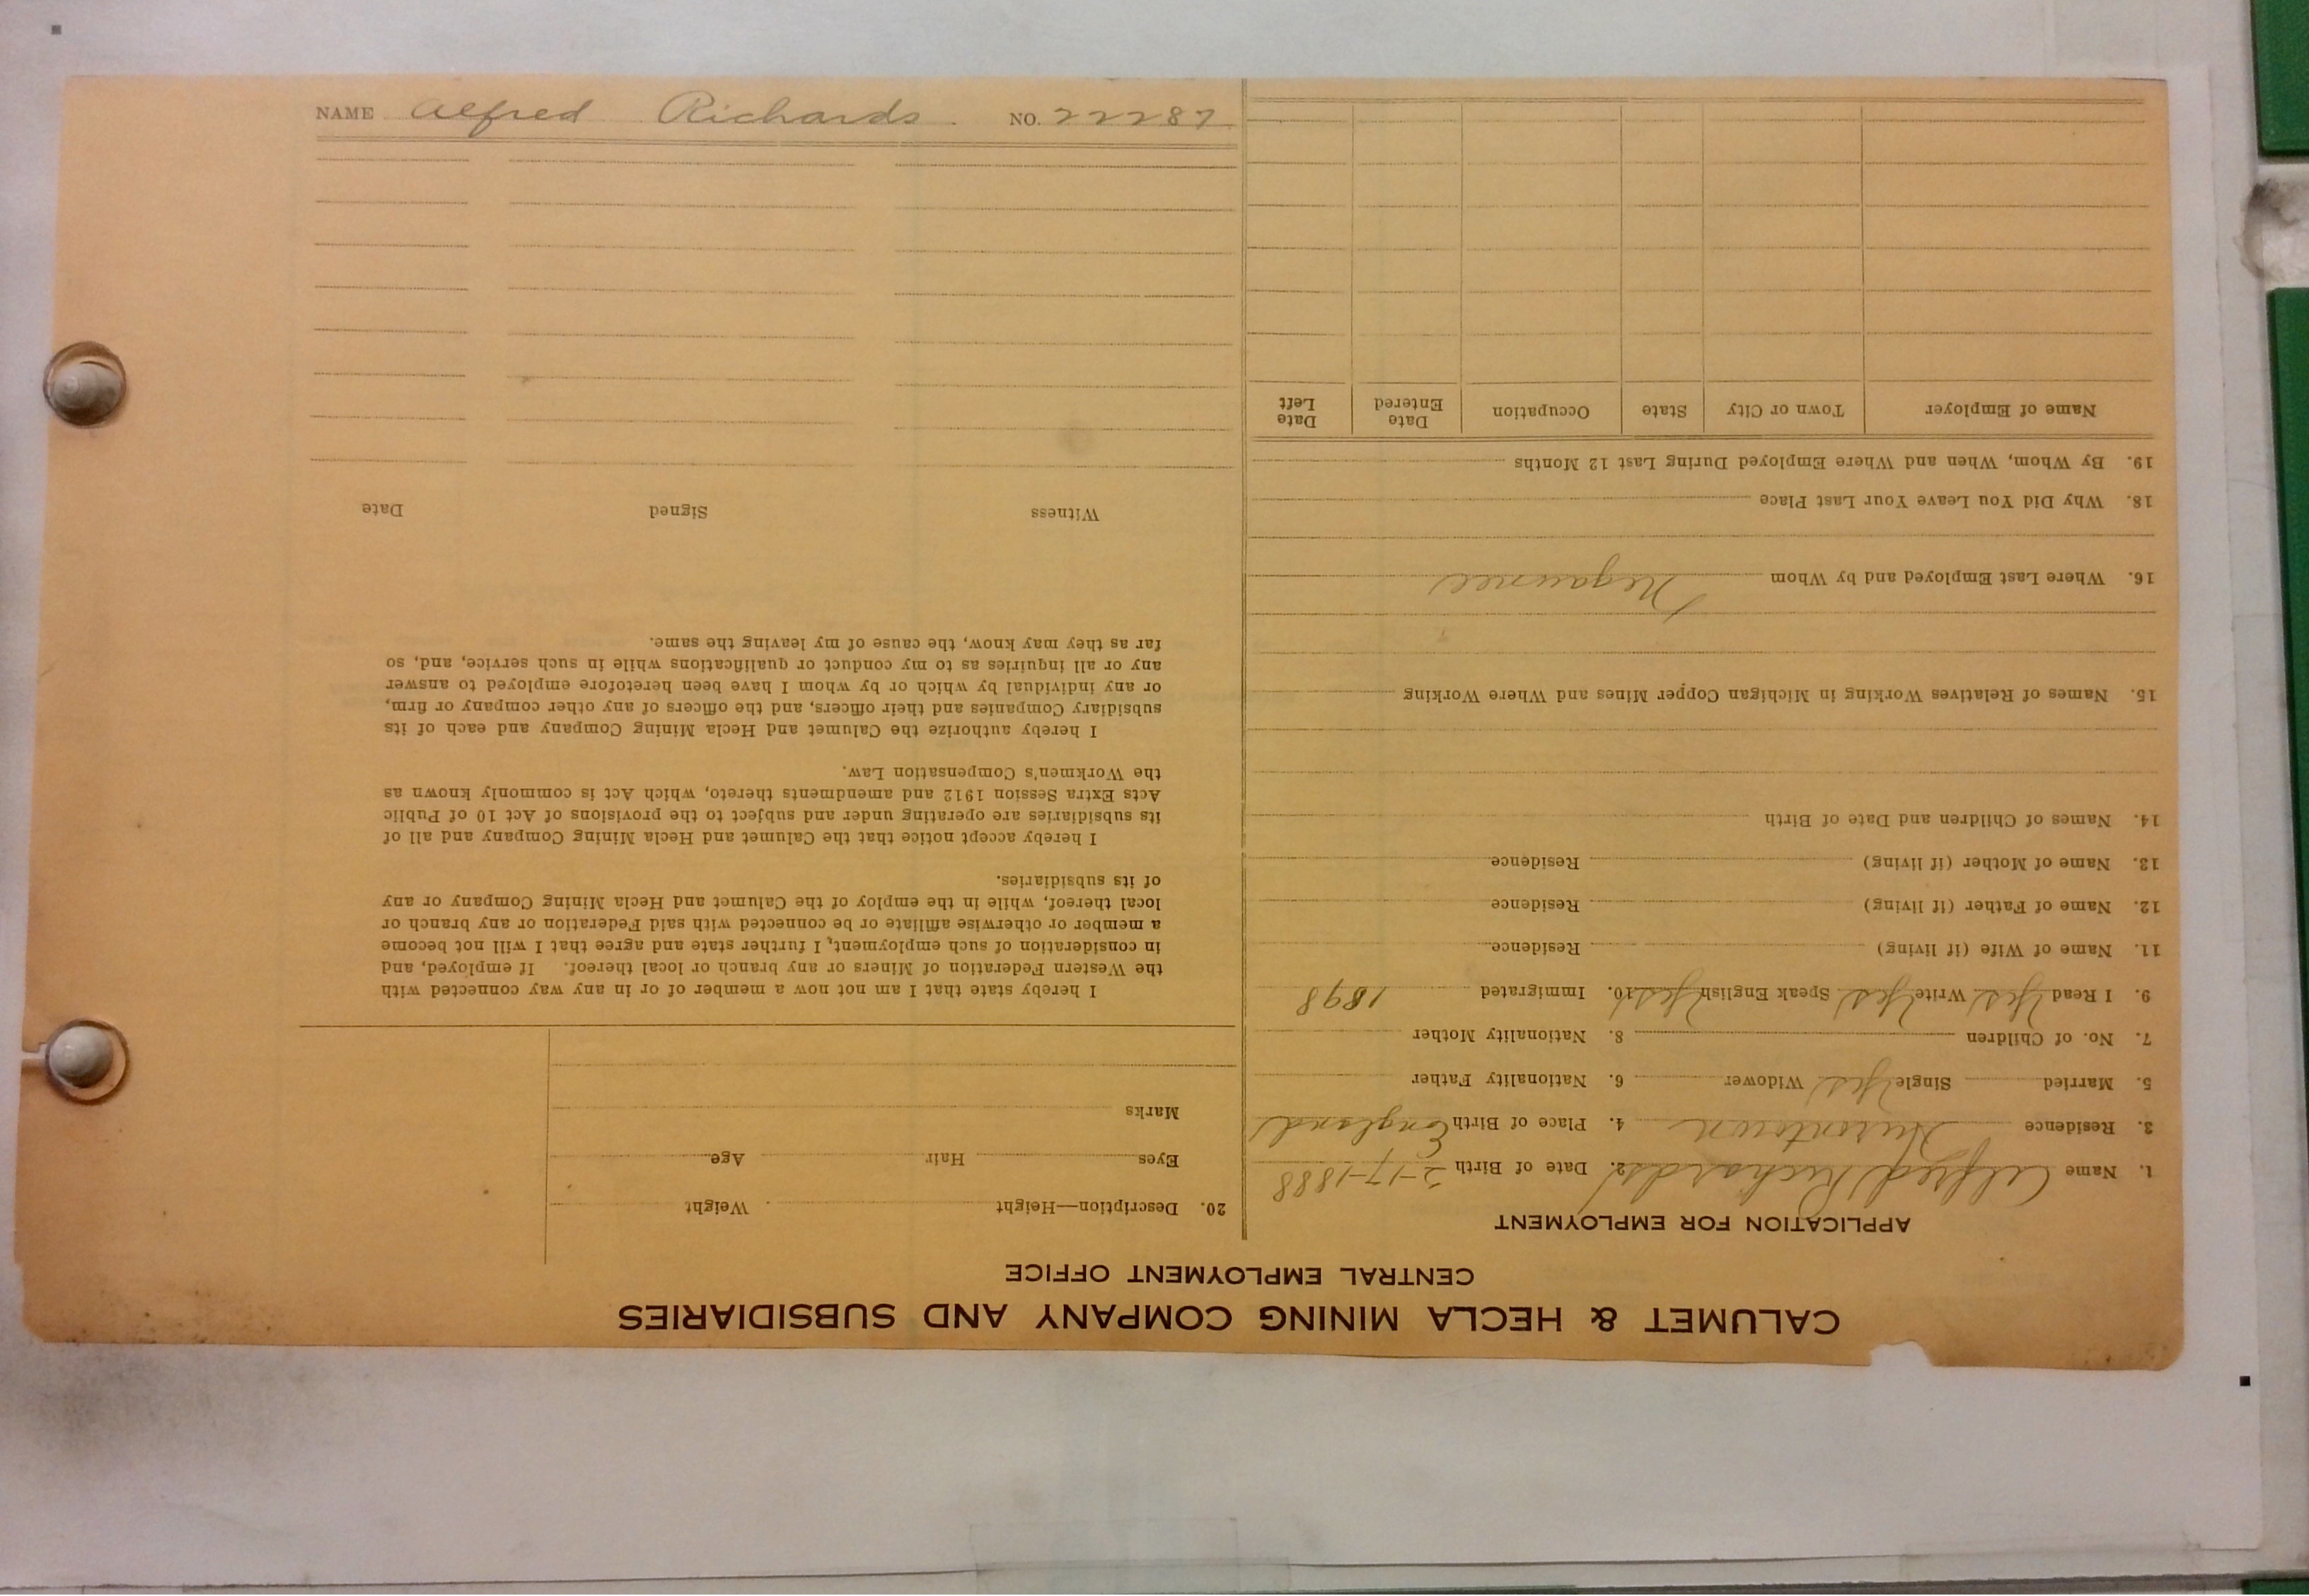 CALUMET & HECLA MINING COMPANY AND SUBSIDIARIES
CENTRAL EMPLOYMENT OFFICE
APPLICATION FOR EMPLOYMENT
1. Name Alfred Richards 2. Date of Birth 2-17-1888
3. Residence Hurontown 4. Place of Birth England
5. Married Single Yes Widower 6. Nationality Father
7. No. of Children 8. Nationality Mother
9. I Read Yes Write Yes Speak English Yes 10. Immigrated 1898
11. Name of Wife (if living) Residence
12. Name of Father (if living) Residence
13. Name of Mother (if living) Residence
14. Names of Children and Date of Birth
15. Names of Relatives Working in Michigan Copper Mines and Where Working
16. Where Last Employed and by Whom Negaunee
18. Why Did You Leave Your Last Place
19. By Whom, When and Where Employed During Last 12 Months
Name of Employer Town or City State Occupation Date Entered Date Left
20. Description—Height Weight
Eyes Hair Age
Marks
I hereby state that I am not now a member of or in any way connected with
the Western Federation of Miners or any branch or local thereof. If employed, and
in consideration of such employment, I further state and agree that I will not become
a member or otherwise affiliate or be connected with said Federation or any branch or
local thereof, while in the employ of the Calumet and Hecla Mining Company or any
of its subsidiaries.
I hereby accept notice that the Calumet and Hecla Mining Company and all of
its subsidiaries are operating under and subject to the provisions of Act 10 of Public
Acts Extra Session 1912 and amendments thereto, which Act is commonly known as
the Workmen's Compensation Law.
I hereby authorize the Calumet and Hecla Mining Company and each of its
subsidiary Companies and their officers, and the officers of any other company or firm,
or any individual by which or by whom I have been heretofore employed to answer
any or all inquiries as to my conduct or qualifications while in such service, and, so
far as they may know, the cause of my leaving the same.
Witness Signed Date
NAME Alfred Richards NO. 22287